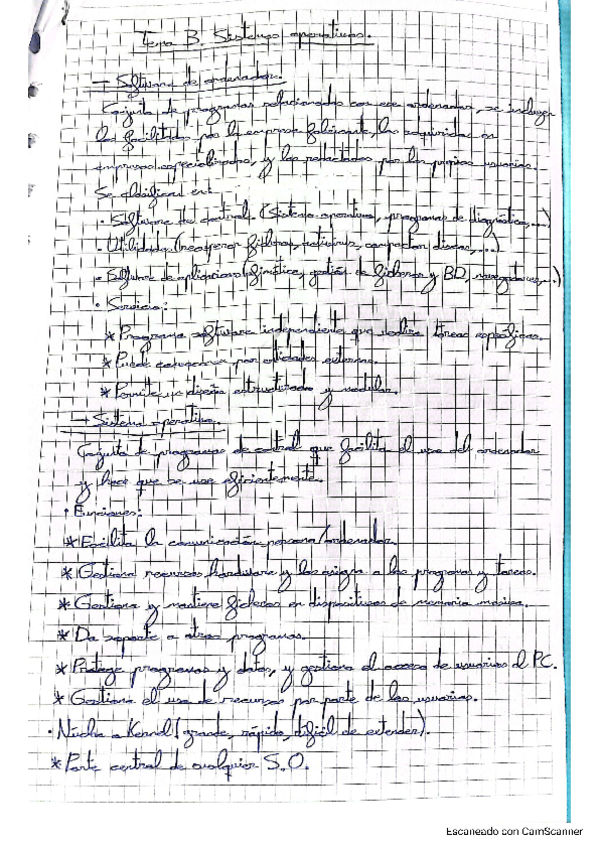 Tema 3. Sistemas operativos.
→ Software de ordenador.
Conjunto de programas relacionados con ese ordenador, se incluye
los facilitados por la empresa fabricante, los adquiridos en
empresas especializadas, y los redactados por los propios usuarios.
Se clasifican en:
· Software de control (Sistema operativo, programas de diagnóstico,...)
· Utilidades (recuperar ficheros, antivirus, compactar discos,...)
· Software de aplicaciones (ofimática, gestión de ficheros y BD, navegadores,...)
· Servicios:
* Programa software independiente que realiza tareas específicas.
* Puede por entidades externas.
* Permite un diseño estructurado y modular.
→ Sistema operativo.
Conjunto de programas de control que facilita el uso del ordenador
y hace que se use eficientemente.
· Funciones:
* Facilita la comunicación persona/ordenador.
* Gestiona recursos hardware y los asigna a los programas y tareas.
* Gestiona y mantiene ficheros en dispositivos de memoria masiva.
* Da soporte a otros programas.
* Protege programas y datos, y gestiona el acceso de usuarios al PC.
* Gestiona el uso de recursos por parte de los usuarios.
· Núcleo o Kernel (grande, rápido, difícil de extender).
* Parte central de cualquier S.O.
Escaneado con CamScanner